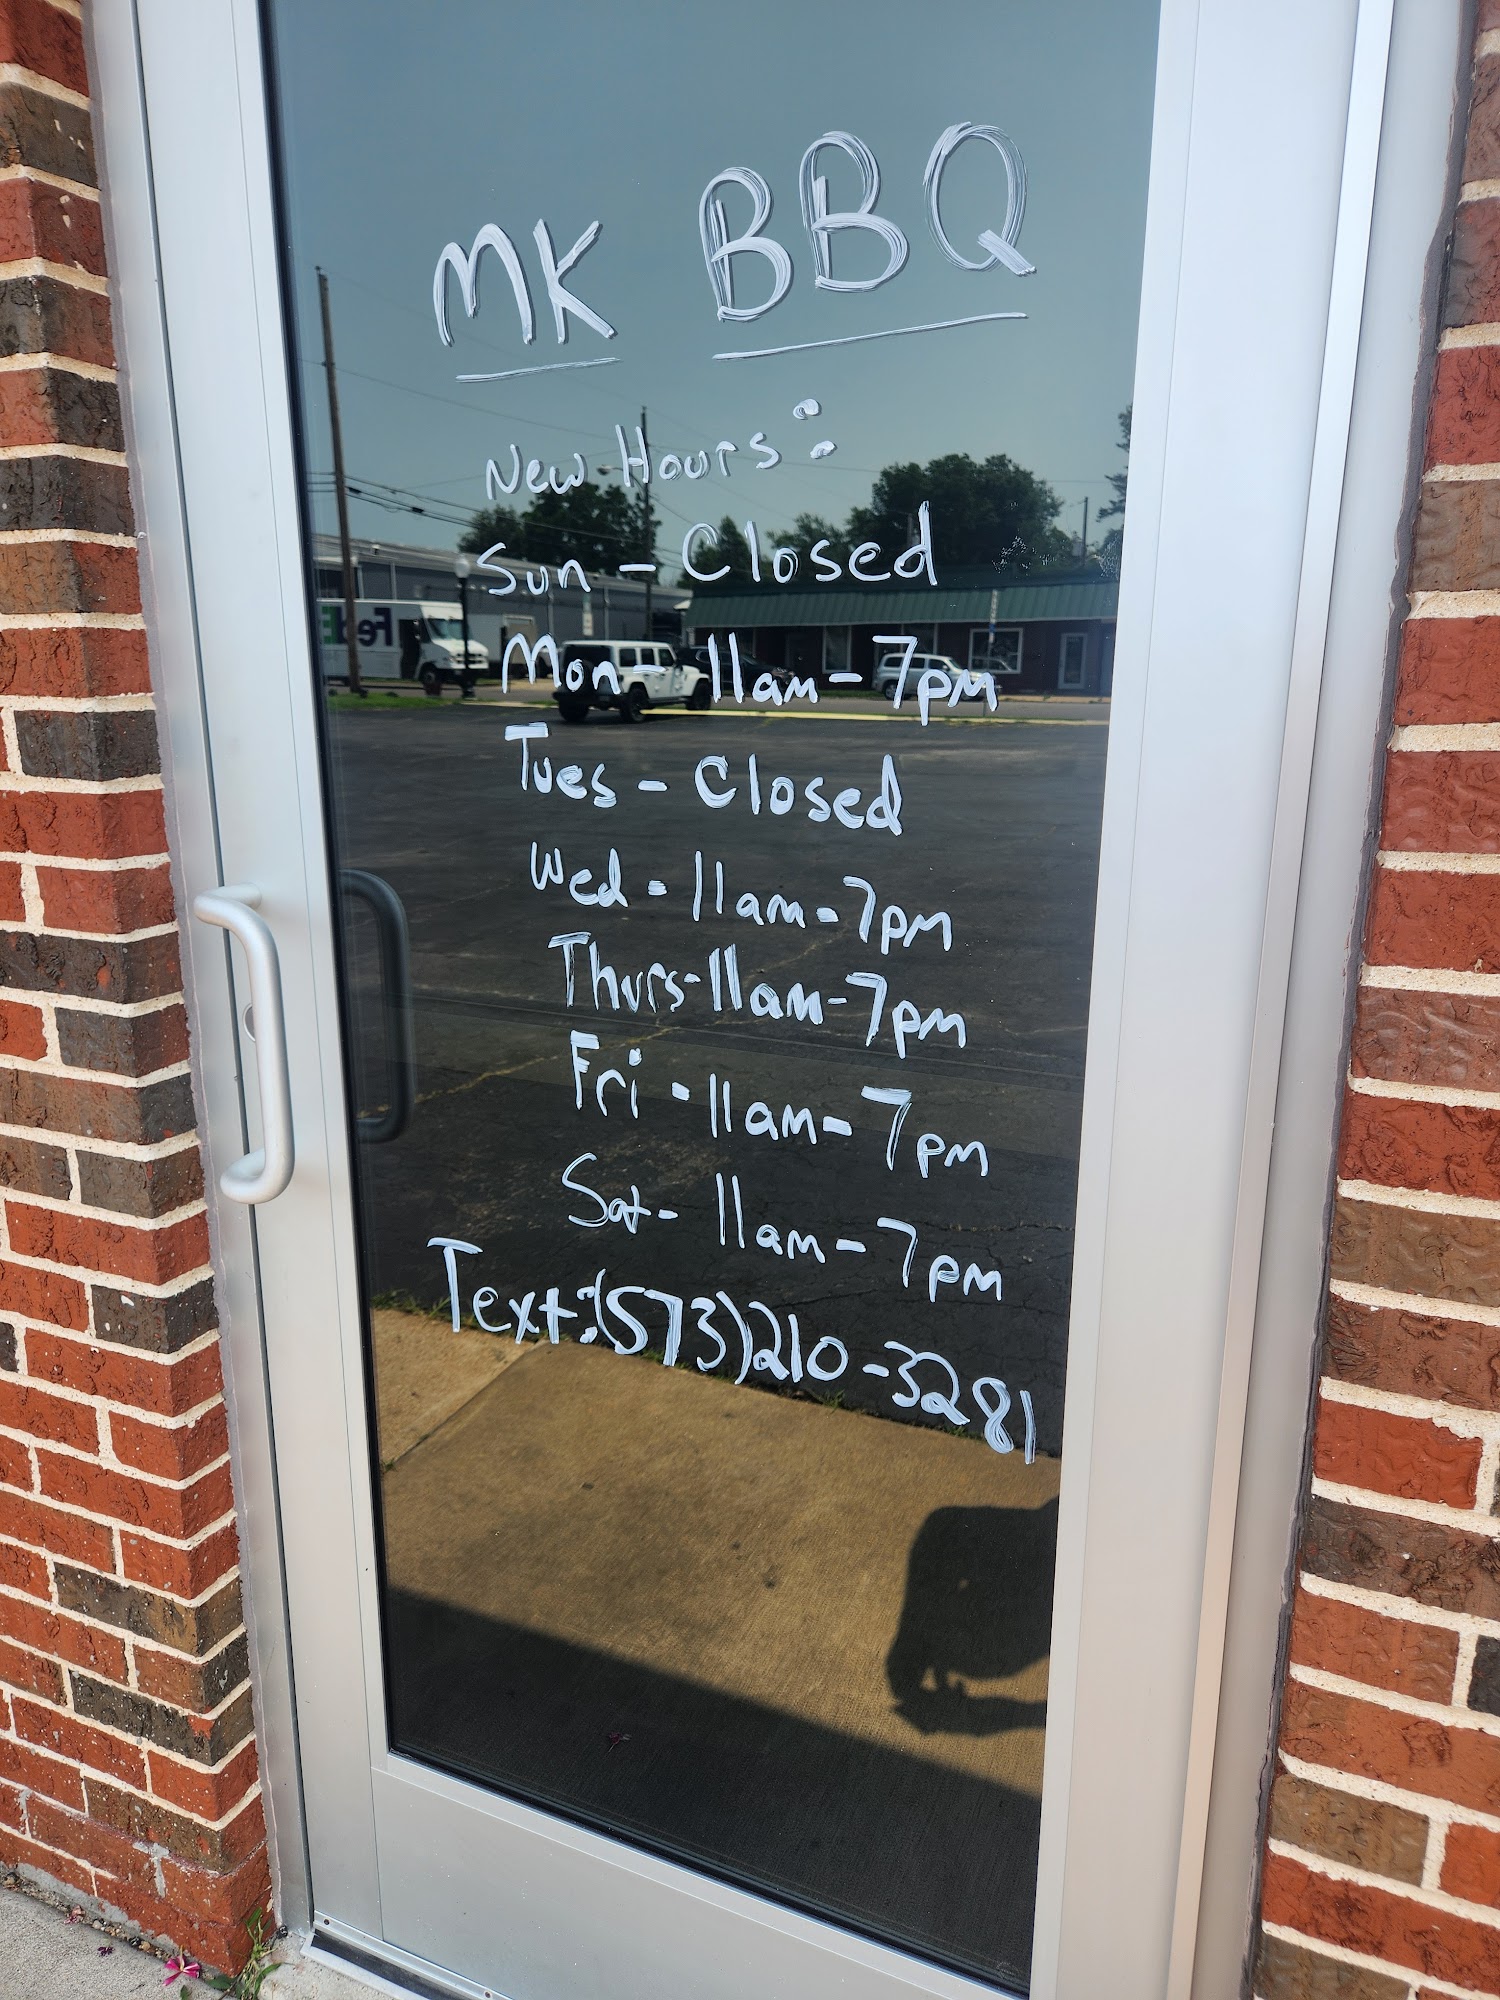 MK BBQ
New Hours:
Sun - Closed
Mon - 11am - 7pm
Tues - Closed
Wed - 11am - 7pm
Thurs - 11am - 7pm
Fri - 11am - 7pm
Sat - 11am - 7pm
Text:(573)210-3281
FedE